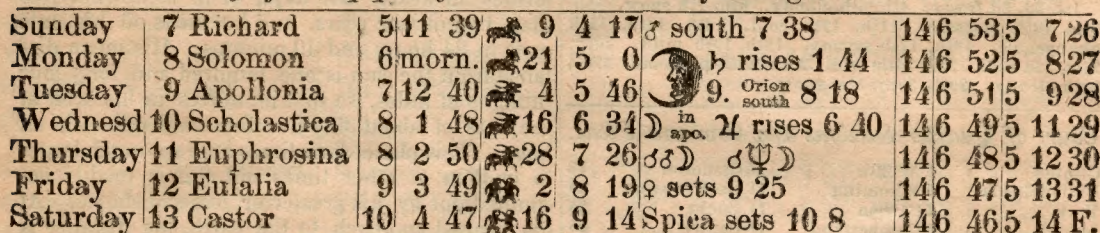 Sunday 7 Richard 5 11 39 9 4 17 ♂ south 7 38 14 6 53 5 7 26
Monday 8 Solomon 6 morn. 21 5 0 ♄ rises 1 44 14 6 52 5 8 27
Tuesday 9 Apollonia 7 12 40 4 5 46 9. Orion south 8 18 14 6 51 5 9 28
Wednesd 10 Scholastica 8 1 48 16 6 34 ☽ in apo. ♃ rises 6 40 14 6 49 5 11 29
Thursday 11 Euphrosina 8 2 50 28 7 26 ☌♂☽ ☌♆☽ 14 6 48 5 12 30
Friday 12 Eulalia 9 3 49 2 8 19 ♀ sets 9 25 14 6 47 5 13 31
Saturday 13 Castor 10 4 47 16 9 14 Spica sets 10 8 14 6 46 5 14 F.